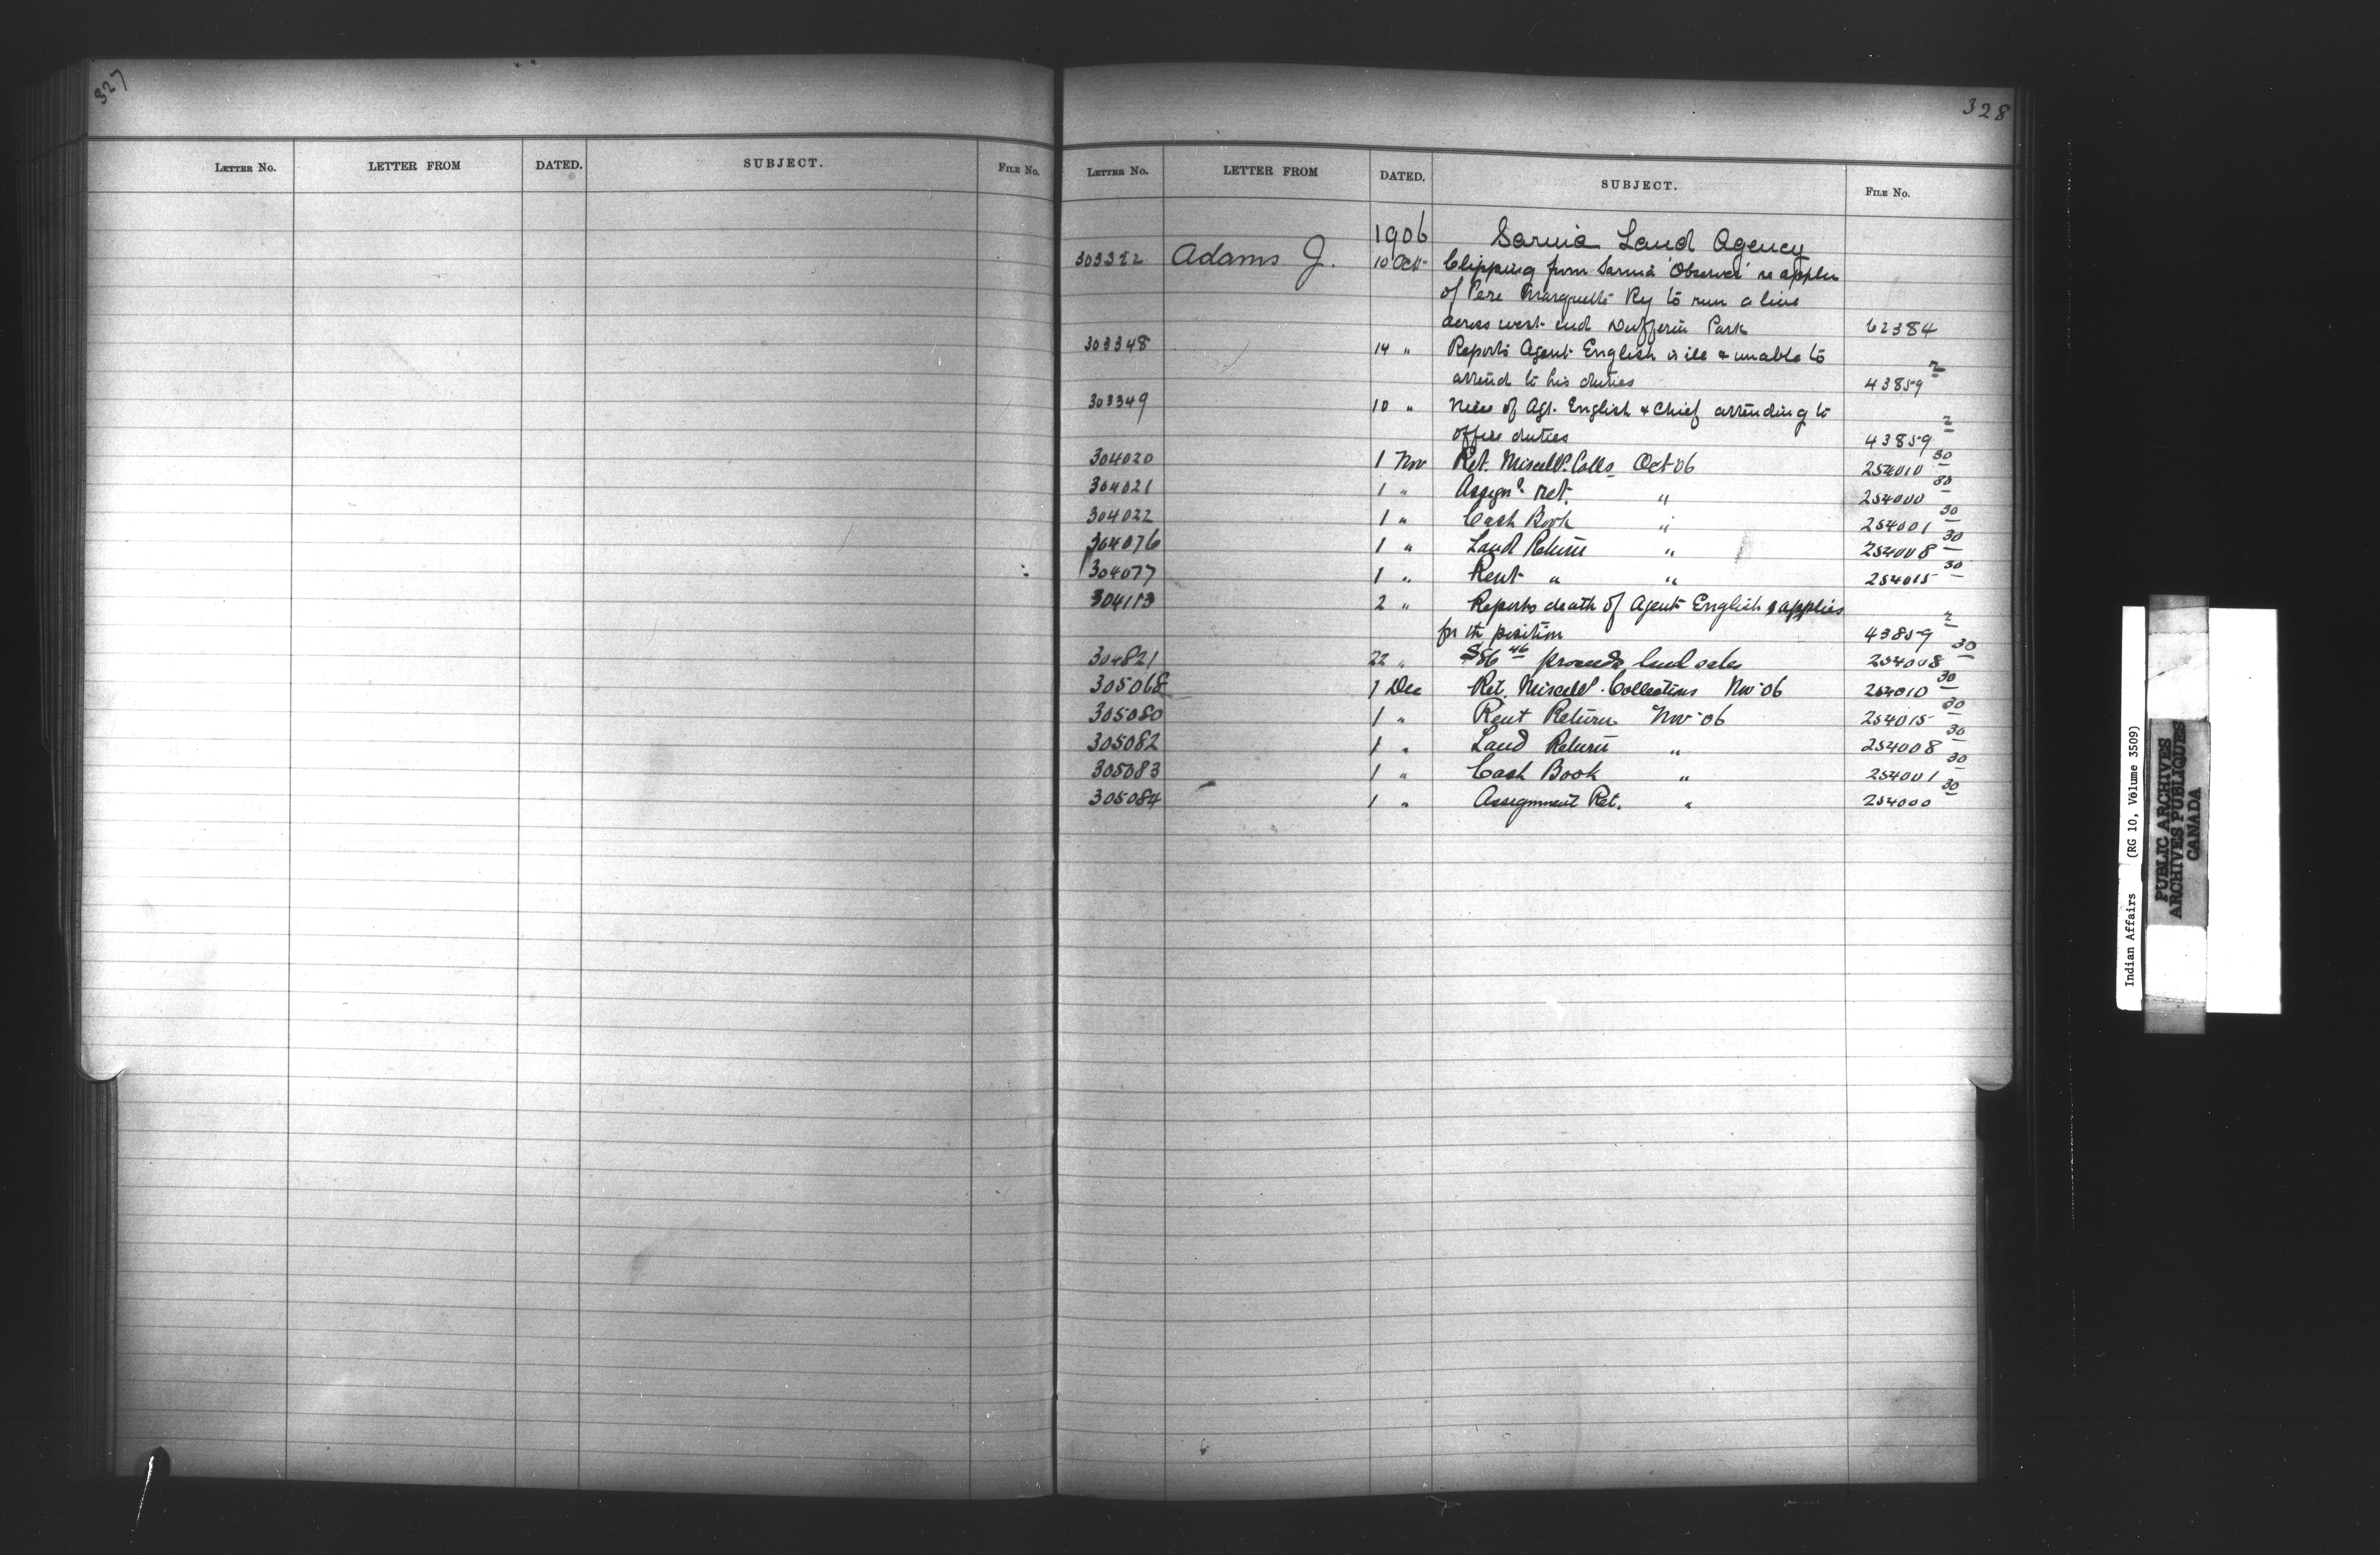 327
LETTER NO. LETTER FROM DATED. SUBJECT. FILE NO.
328
LETTER NO. LETTER FROM DATED. SUBJECT. FILE NO.
1906 Sarnia Land Agency
303322 Adams J. 10 Oct Clipping from Sarnia 'Observer' re applen
of Pere Marquette Ry to run a line
across west end Dufferin Park 62384
303348 14 " Reports Agent English is ill & unable to
attend to his duties 43859 2
303349 10 " of Agt. English & Chief attending to
office duties 43859 2
304020 1 Nov Ret. Miscells. Colls Oct 06 254010 30
304021 1 " Assignt ret. " 254000 30
304022 1 " Cash Book " 254001 30
304076 1 " Land Return " 254008 30
304077 1 " Rent " " 254015 30
304113 2 " Reports death of Agent English & applies
for the position 43859 2
304821 22 " $86 46 proceeds land sales 254008 30
305068 1 Dec Ret. Miscells. Collections Nov 06 254010 30
305080 1 " Rent Return Nov 06 254015 30
305082 1 " Land Return " 254008 30
305083 1 " Cash Book " 254001 30
305084 1 " Assignment Ret. " 254000 30
Indian Affairs (RG 10, Volume 3509)
PUBLIC ARCHIVES
ARCHIVES PUBLIQUES
CANADA